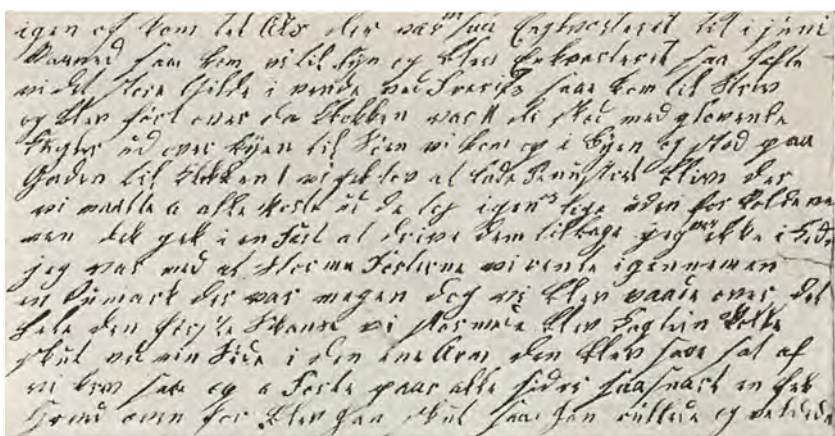 igen og kom til Als der var saa Enkvarteret til i juni
Maaned saa kom vi til Fyn og blev Enkvarteret saa hafte
vi det store Gilde i vende ved Fredrits saa kom til Strev
og blev först over da Klokken var 11 di sköd med glovente
Kugler ud over Byen til Söen vi kom op i Byen og stod paa
Gaden til Klokken 1 vi fik lov at lade Denustrel blive der
vi maatte a alle Poste ud de tog igen lige uden for Volde ne
men dek gek i en Fart at drive dem tilbage jeg var ikke i Fedt
jeg var med at Storme Festerne vi rente igennemen
en Rumark der var megen Dog vi blev vaade over det
hele den förste Skanse vi stormede blev Captein
skut ved min Side i den ene Arm den blev save sat af
vi kom saa og a Feste paa alle sider saasnart en fek
Hoved oven for blev han skut saa han rullede og